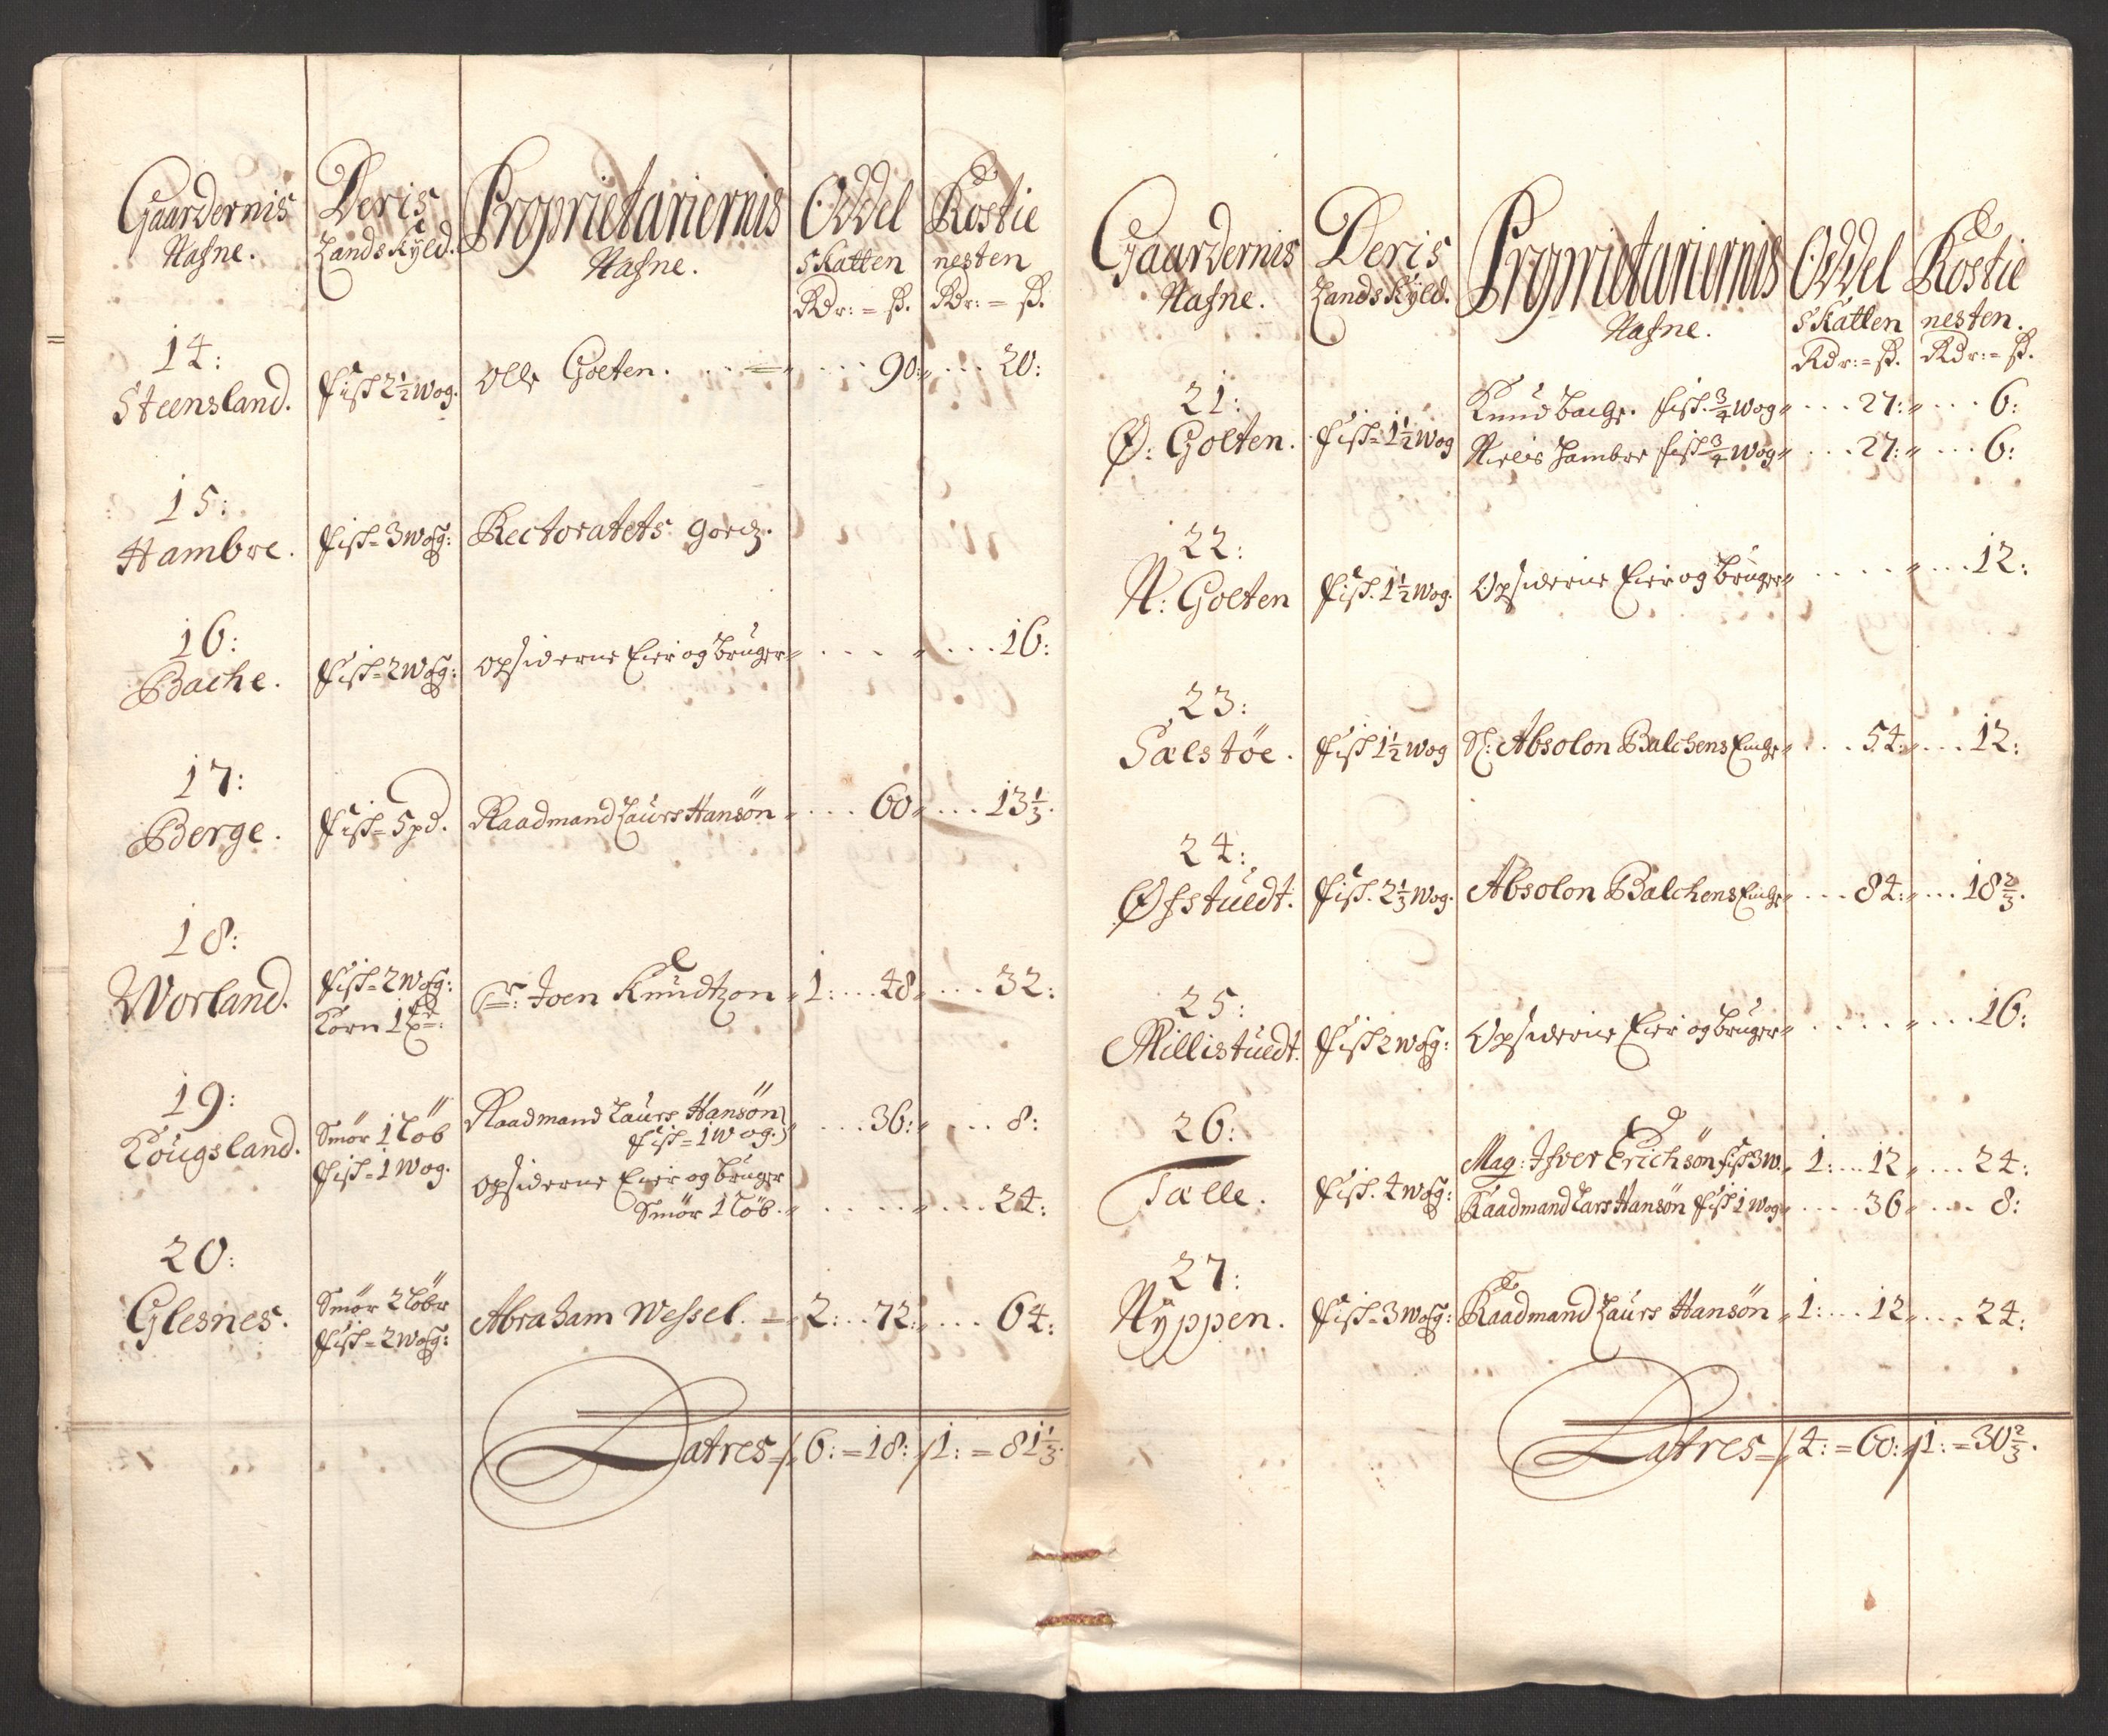 Gaardernis Nafne. | Deris Landskyld. | Proprietariernis Nafne. | Oddel skatten Rdr: = ß. | Rostie nesten Rdr: = ß.
14:
Steensland. | fisk 2½ Wog. | Olle Golten. | 90: | 20:
15:
Hambre. | fisk = 3 Wog: | Rectoratets godz.
16:
Bache. | fisk = 2 Wog: | Opsiderne Eier og bruger | . . . | 16:
17:
Berge. | fisk = 5 pd. | Raadmand Laurs Hansøn | 60 | 13⅓.
18:
Worland. | fisk = 2 Wog: | Sr: Joen Knudtzon | 1: 48 | 32:
Korn 1 pd:
19:
Kougsland. | Smør 1 løb | Raadmand Laurs Hansøn | 36: | 8:
fisk = 1 Wog. | fisk = 1 Wog.
Opsiderne Eier og bruger
Smør 1 løb. | . . . . | 24:
20:
Glesnes. | Smør 2 løbr | Abraham Wessel. | 2: 72: | 64:
fisk = 2 Wog:
Latres = 6: = 18: | 1: = 81⅓.
Gaardernis Nafne. | Deris Landskyld. | Proprietariernis Nafne. | Oddel skatten Rdr: = ß. | Rostie nesten. Rdr: = ß.
21:
Ø: Golten. | fisk = 1½ Wog | Knud Bache. fisk. ¾ Wog | 27: | 6:
Niels Hambre fisk ¾ Wog | 27: | 6:
22:
N: Golten | fisk. 1½ Wog. | Opsiderne Eier og bruger | . . . . | 12:
23:
Sælstøe. | fisk 1½ Wog | Sl: Absolon Balchens Enche | 54: | 12:
24:
Øfstuedt. | fisk. 2⅓ Wog. | Absolon Balchens Enche | 84: | 18⅔.
25:
Millistuedt. | fisk 2 Wog: | Opsiderne Eier og bruger | . . . . | 16:
26:
Tælle. | fisk. 4 Wog: | Mag: Ifver Erichsøn fisk 3 W. | 1: 12 | 24:
Raadmand Lars Hansøn fisk 1 Wog | 36 | 8:
27:
Nyppen. | fisk = 3 Wog: | Raadmand Laurs Hansøn | 1: 12 | 24:
Latres = 4: = 60: | 1: = 30⅔.